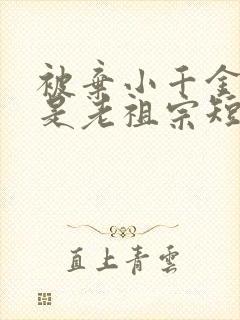 被弃小千金
是老祖宗短
直上青雲